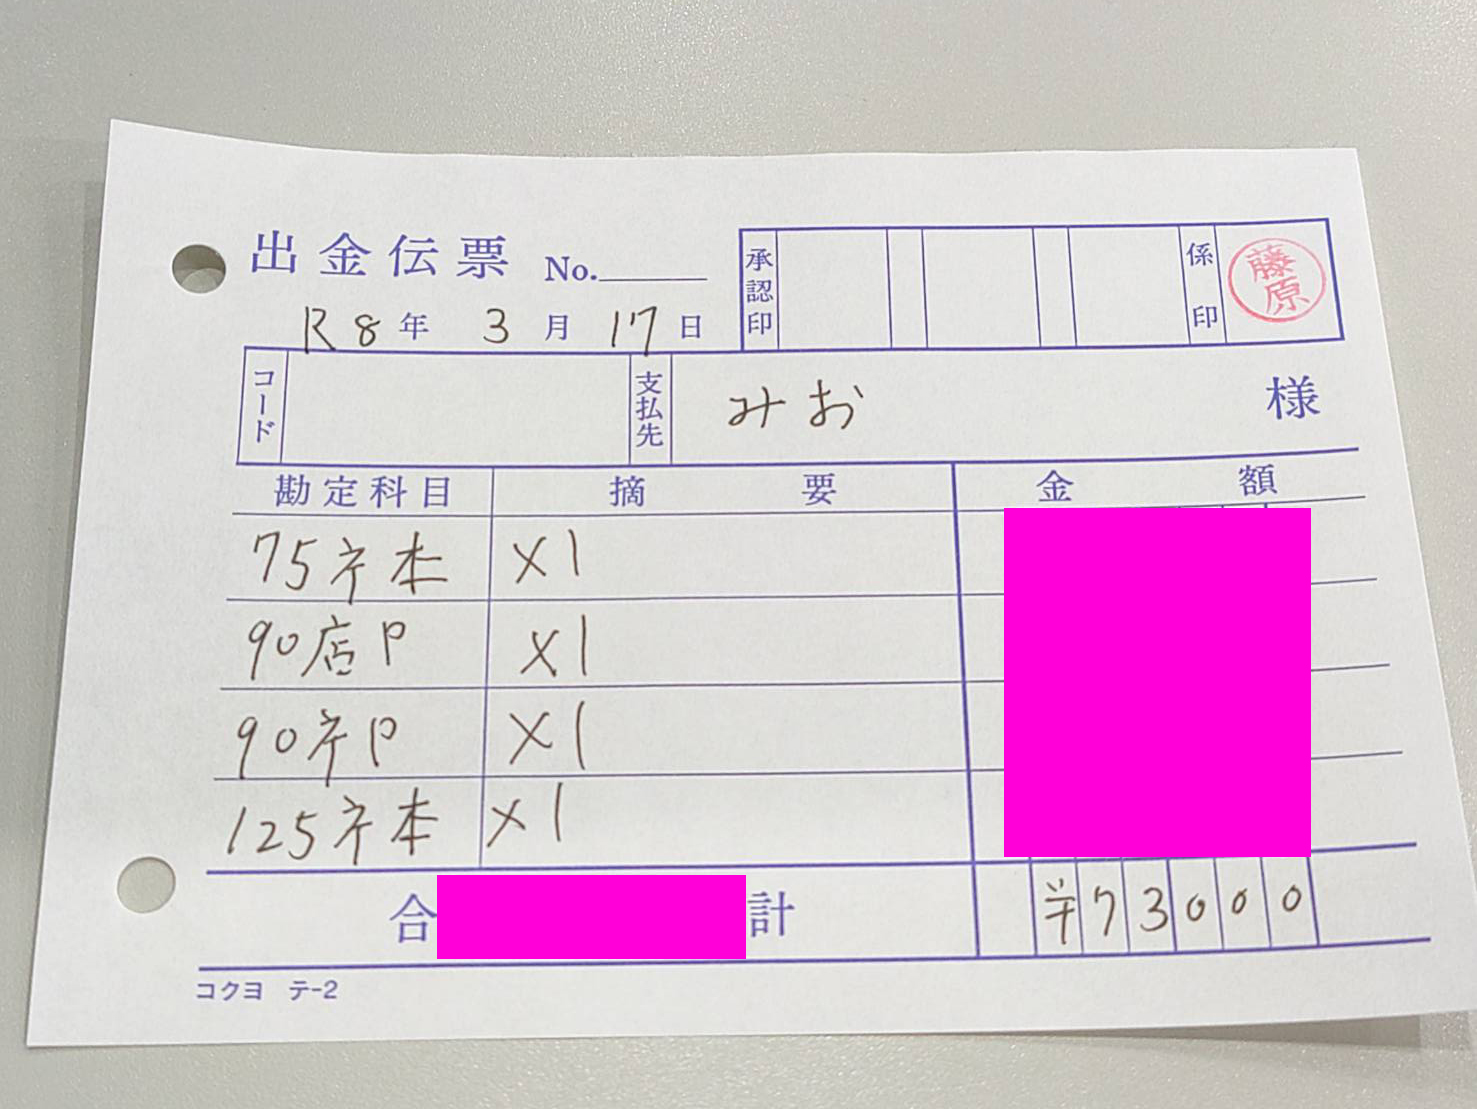 出金伝票 No.
承認印
係印
藤原
R8年 3月 17日
コード
支払先
みお 様
勘定科目 摘要 金額
75ネ本 ×1
90店P ×1
90ネP ×1
125ネ本 ×1
合計 ¥73000
コクヨ テ-2